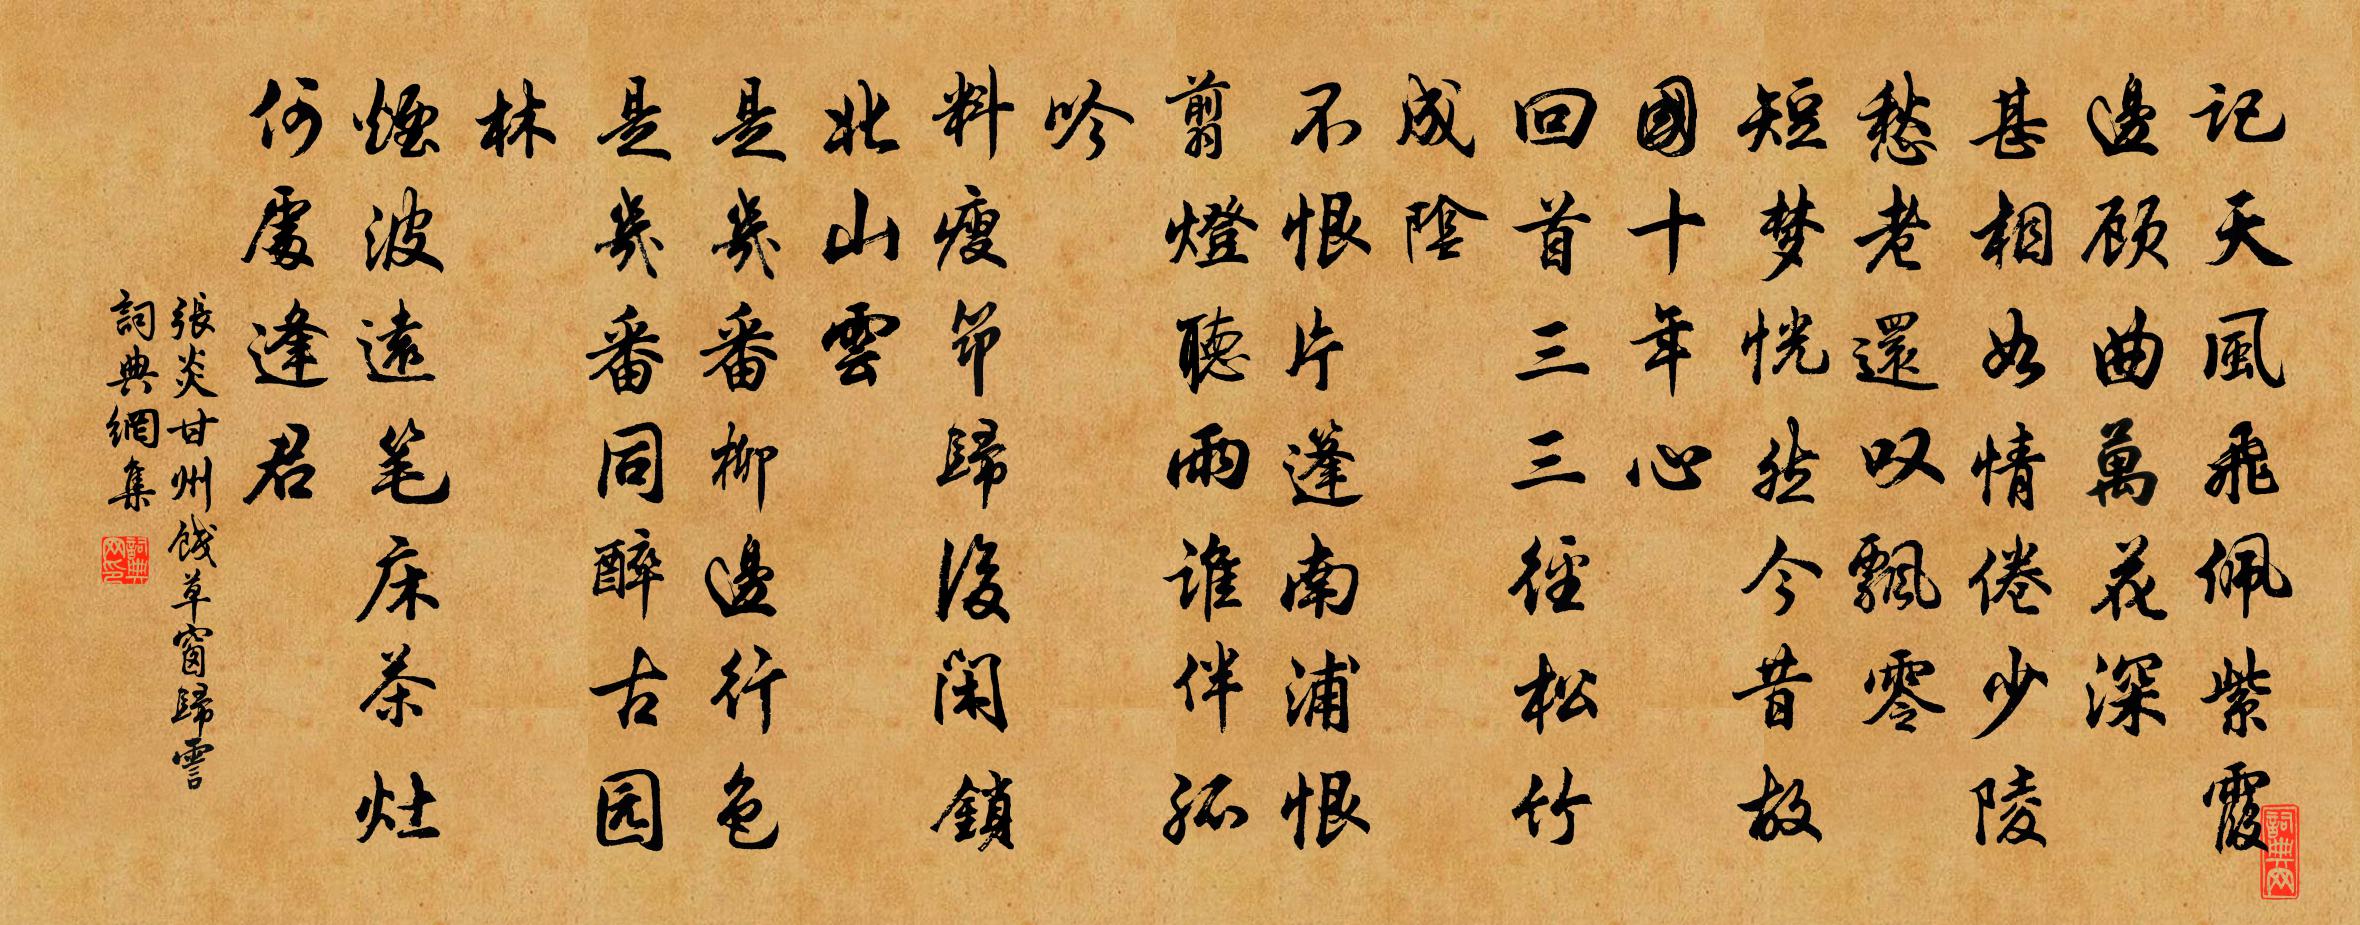 記天風飛佩紫霞
邊顾曲萬花深
甚相如情倦少陵
愁老還叹飄零
短梦恍然今昔故
國十年心
回首三三徑松竹
成陰
不恨片篷南浦恨
剪燈聽雨誰伴孤
吟
料瘦筇歸後閑鎖
北山雲
是幾番柳邊行色
是幾番同醉古园
林
煙波遠笔床茶灶
何處逢君
張炎甘州餞草窗歸霅
詞典網集
詞典网印
詞典网